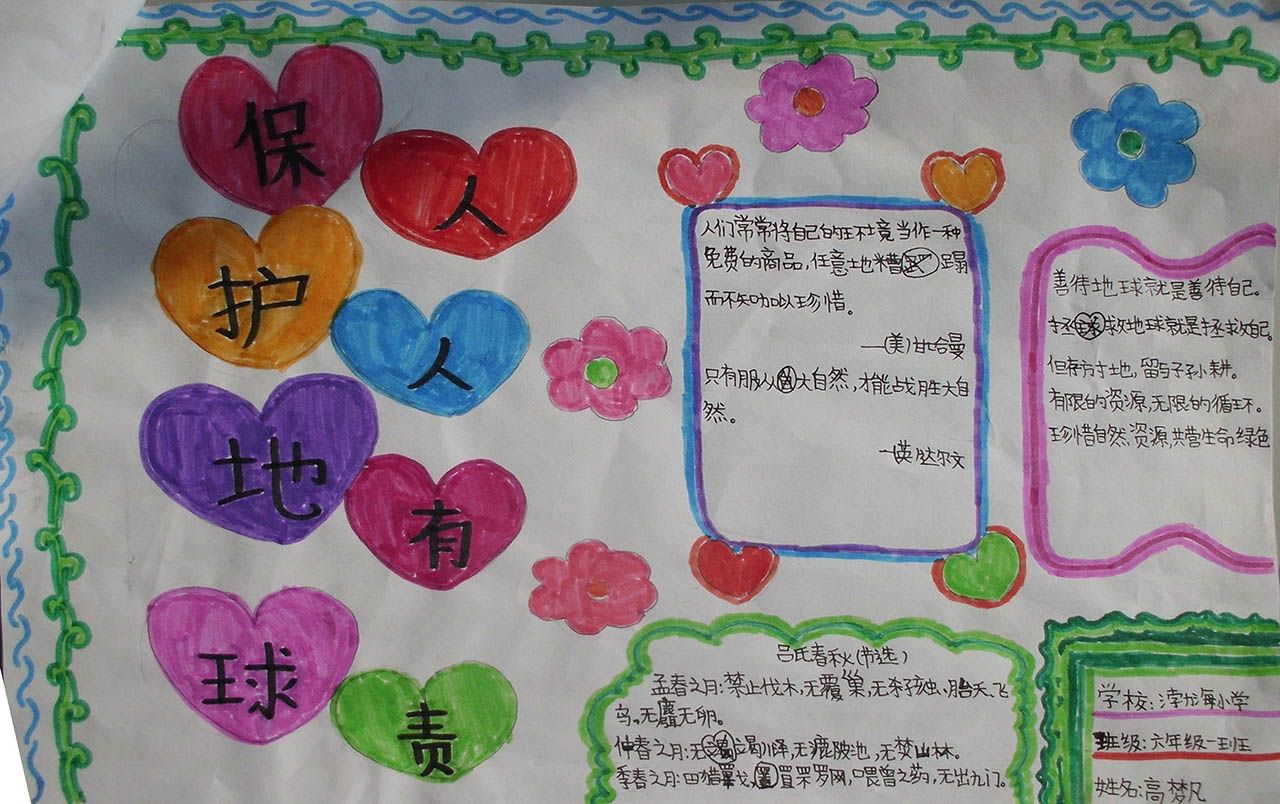 保护地球
人人有责
人们常常将自己的环境当作一种
免费的商品,任意地糟蹋
而不知加以珍惜。
——(美)甘哈曼
只有服从大自然,才能战胜大自
然。
——(英)达尔文
善待地球就是善待自己。
拯救地球就是拯救自己。
但存方寸地,留与子孙耕。
有限的资源,无限的循环。
珍惜自然资源,共营生命绿色
吕氏春秋(节选)
孟春之月:禁止伐木,无覆巢,无杀孩虫、胎夭、飞
鸟,无麛无卵。
仲春之月:无竭川泽,无漉陂池,无焚山林。
季春之月:田猎罼弋,罝罘罗网,喂兽之药,无出九门。
学校:淳龙海小学
班级:六年级一班
姓名:高梦凡